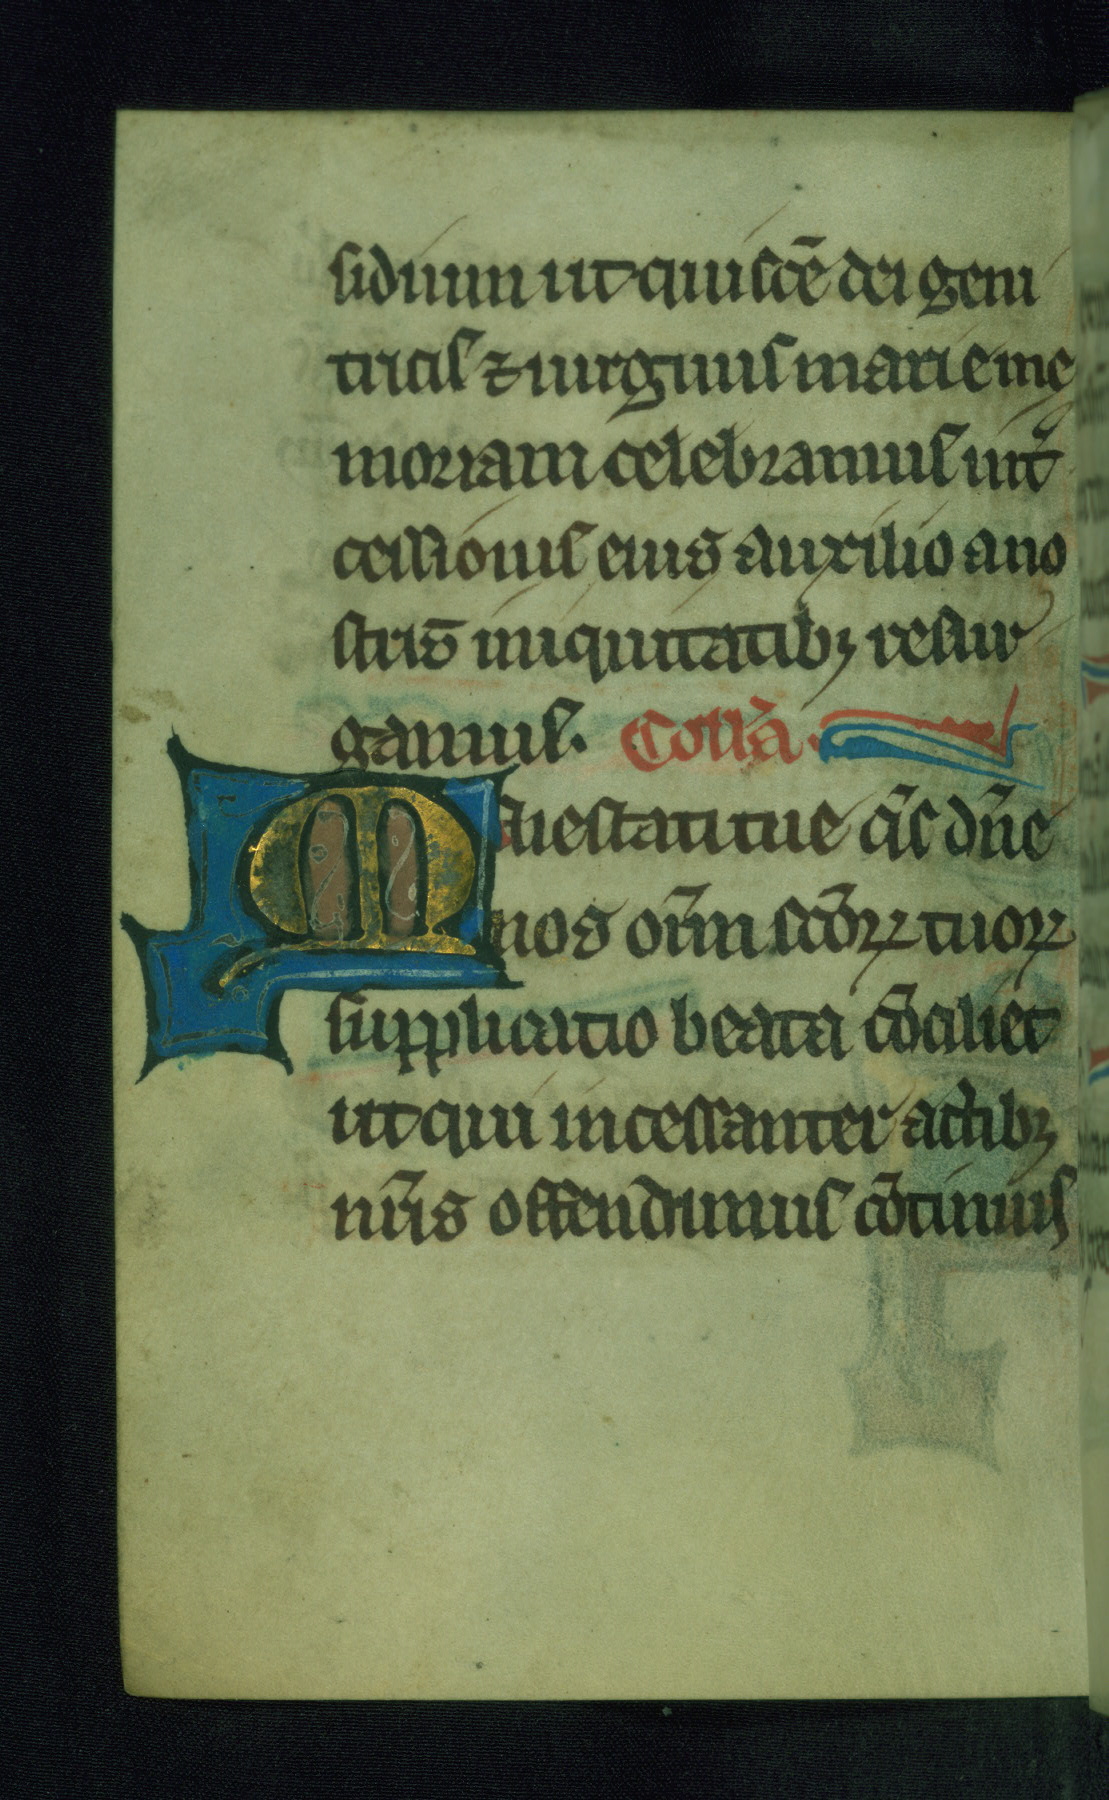 sidium ut qui scē dei geni
tricis ⁊ uirginis marie me
moriam celebramus int̾
cessionis eius auxilio a no
stris iniquitatibꝫ resur
gamus. Coll'a.
Maiestati tue q̄s dn̄e
nos om̄m scōꝝ tuoꝝ
supplicatio beata cōciliet
ut qui incessanter actibꝫ
nr̄is offendimus cōtinuis